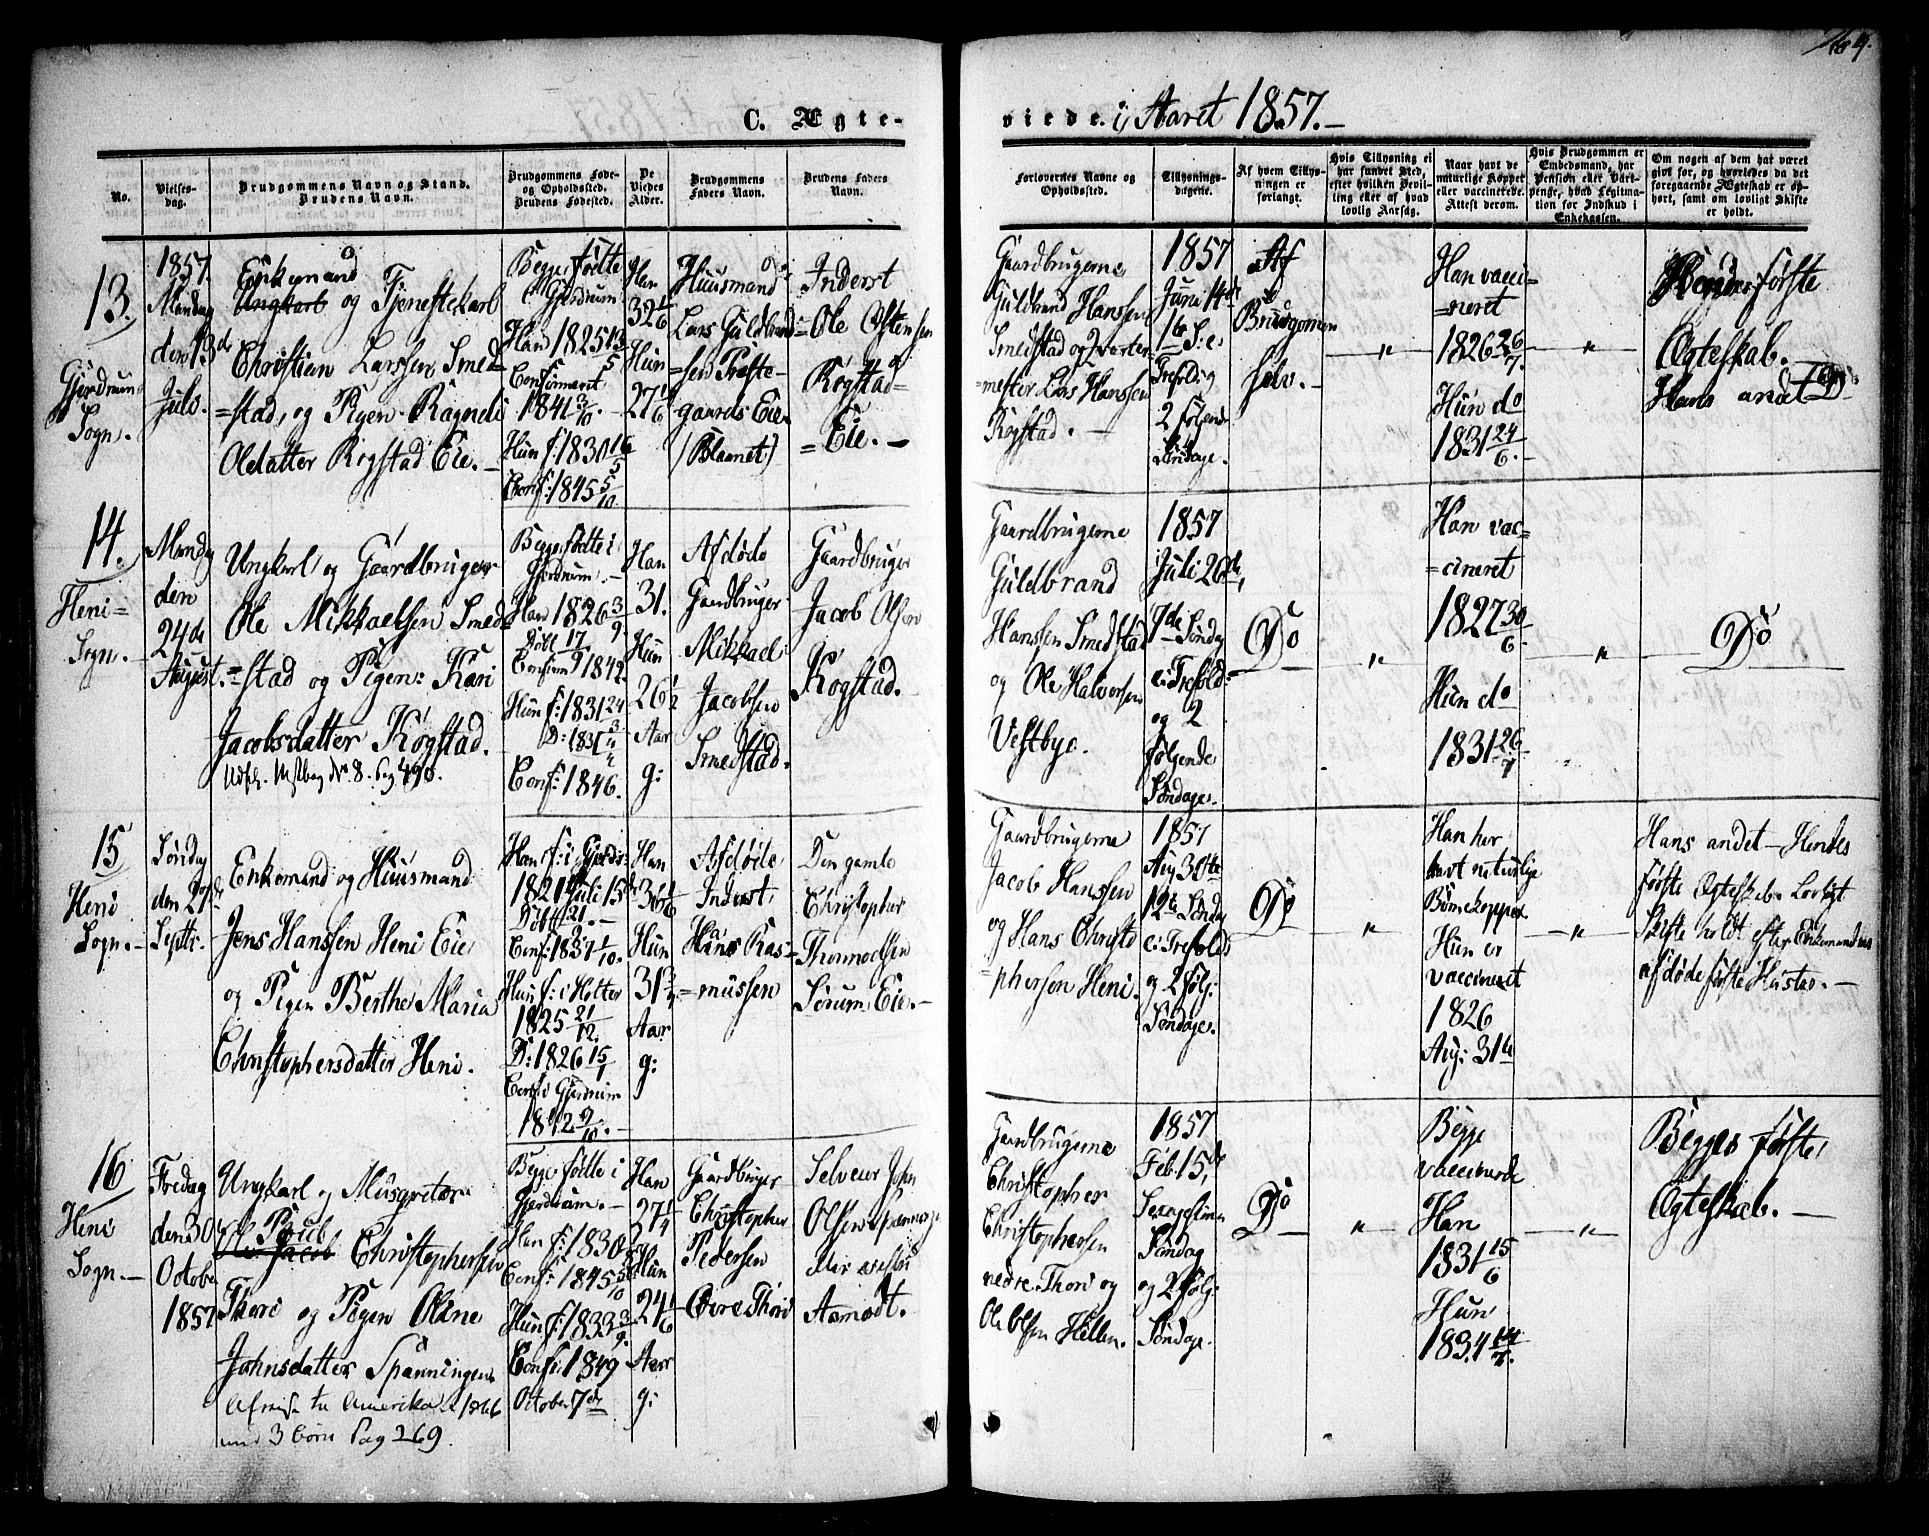 C. Ægte-
viede i Aaret 1857.-
No.
Vielses-
dag.
Brudgommens Navn og Stand.
Brudens Navn.
Brudgommens Føde-
og Opholdssted.
Brudens Fødested.
De
Viedes
Alder.
Brudgommens
Faders Navn.
Brudens Faders
Navn.
Forlovernes Navne og
Opholdssted.
Tillysnings-
dagene.
Af hvem Tillys-
ningen er
forlangt.
Hvis Tillysning ei
har fundet Sted,
efter hvilken Bevil-
ling eller af hvad
lovlig Aarsag.
Naar havt de
naturlige Kopper
eller vaccinerede.
Attest derom.
Hvis Brudgommen er
Embedsmand, har
Pension eller Vart-
penge, hvad Legitima-
tion for Indskud i
Enkekassen.
Om nogen af dem har været
givt før, og hvorledes da det
foregaaende Ægteskab er op-
hørt, samt om lovligt Skifte
er holdt.
13.
Gjerdrum
Sogn.
1857.
Mandag
den 13de
Juli.
Enkemand
Ungkarl og Tjenestekarl
Christian Larssen Smed-
=stad, og Pigen Ragnild
Olsdatter Rogstad Eie.-
Begge fødte
i Gjerdrum
Han 1825 13/5
Confirmeret
1841 3/10.-
Hun f: 1830 16/5
Conf: 1845 5/10
Han
32 1/6
Hun
27 1/6
Huusmand
Lars Guldbrand-
=sen Præste-
gaards Eie
(Blaanet)
Inderst
Ole Ostensen
Rogstad-
=Eie.-
Gaardbrugerne
Guldbrand Hanssen
Smedstad og Qvarter-
=mester Lars Hanssen
Rogstad.-
1857
Juni 14de
1te S: e:
Trefoldig
2 følgende
Søndage.
Af
Brudgommen
selv.-
"
Han vacci-
=neret
1826 26/7
Hun do
1831 24/6.
"
Hendes første
Ægteskab.
Hans andet
14.
Heni=
Sogn.-
Mandag
den
24de
August.
Ungkarl og Gaardbruger
Ole Mikkaelsen Smed-
=stad og Pigen: Kari
Jacobsdatter Rogstad.
Begge fødte i
Gjerdrum.-
Han 1826 3/9
Døbt 17/9
Confirm 1842.
Hun f: 1831 24/3
D: 1831 4/4
Conf: 1846.
Han
31.
Hun
26 1/2
Aar
g:
Afdøde
Gaardbruger
Mikkael
Jacobsen
Smedstad.
Gaardbruger
Jacob Olsen
Rogstad.
Gaardbrugerne
Guldbrand
Hanssen Smedstad
og Ole Halvorsen
Vestbye.
1857
Juli 26de,
7de Søndag
e: Trefold:
og 2
følgende
Søndage.
Do
"
Han vac=
=cineret
1827 30/6.
Hun do
1831 26/7
"
Do
15
Heni
Sogn.-
Søndag
den 27de
Septbr.
Enkemand og Huusmand
Jens Hanssen Heni Eie
og Pigen Berthe Maria
Christophersdatter Heni.
Han f: i Gjerdr:
1821 Juli 15de
Døbt 21.-
Conf: 1837 1/10.
Hun f: i Holter
1825 21/12.
D: 1826 15/1
Conf: i Gjerdrum
1842 9/10.-
Han
36 1/6
Hun
31 3/4
Aar
g:
Afdøde
Inderst
Hans Ras-
=mussen
Den gamle
Christopher
Thormodsen
Sørum Eie.-
Gaardbrugerne
Jacob Hanssen
og Hans Christo
=phersen Heni.
1857
Aug 30te
12te Søndag
e: Trefolds
og 2 følg:
Søndage.
Do
"
Han her
havt naturlige
Børnekopper
Hun er
vaccineret
1826
Aug: 31te
"
Hans andet - Hendes
første Ægteskab. Lovligt
Skifte holdt efter Enkemandens
afdøde første Hustru.-
16
Heni
Sogn.-
Fredag
den 30
October
1857
Ungkarl og Musqveter
Ole Jacob Christophersen
Thori og Pigen Oline
Johnsdatter Spanningen
Afreist til Amerika 1866
med 3 børn Pag 269.
Begge fødte i
Gjerdrum.-
Han f: 1830
Conf: 1845 5/10
Hun f: 1833 3/9.
Conf: 1849
October 7de
Han
27 1/4
Hun
24 1/6
Aar
g:
Gaardbruger
Christopher
Pedersen
Øvre Thori
Selveier John
Olsen
Aamodt.
Gaardbrugerne
Christopher
Christophersen
nedre Thori og
Ole Olsen Hellen.
1857
Feb. 15de
Sexagesima
Søndag
og 2 følg:
Søndage.
Do
"
Begge
vaccinerede
Han
1831 15/6
Hun
1834 14/7.
"
Begges første
Ægteskab.-